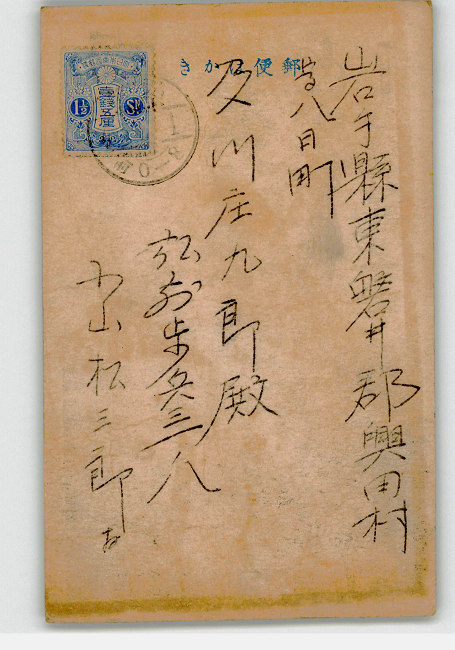 郵便はかき
岩手縣東磐井郡興田村
八日町
及川庄九郎殿
弘前歩兵三一八
小山松三郎
壹錢五厘
1½ Sn